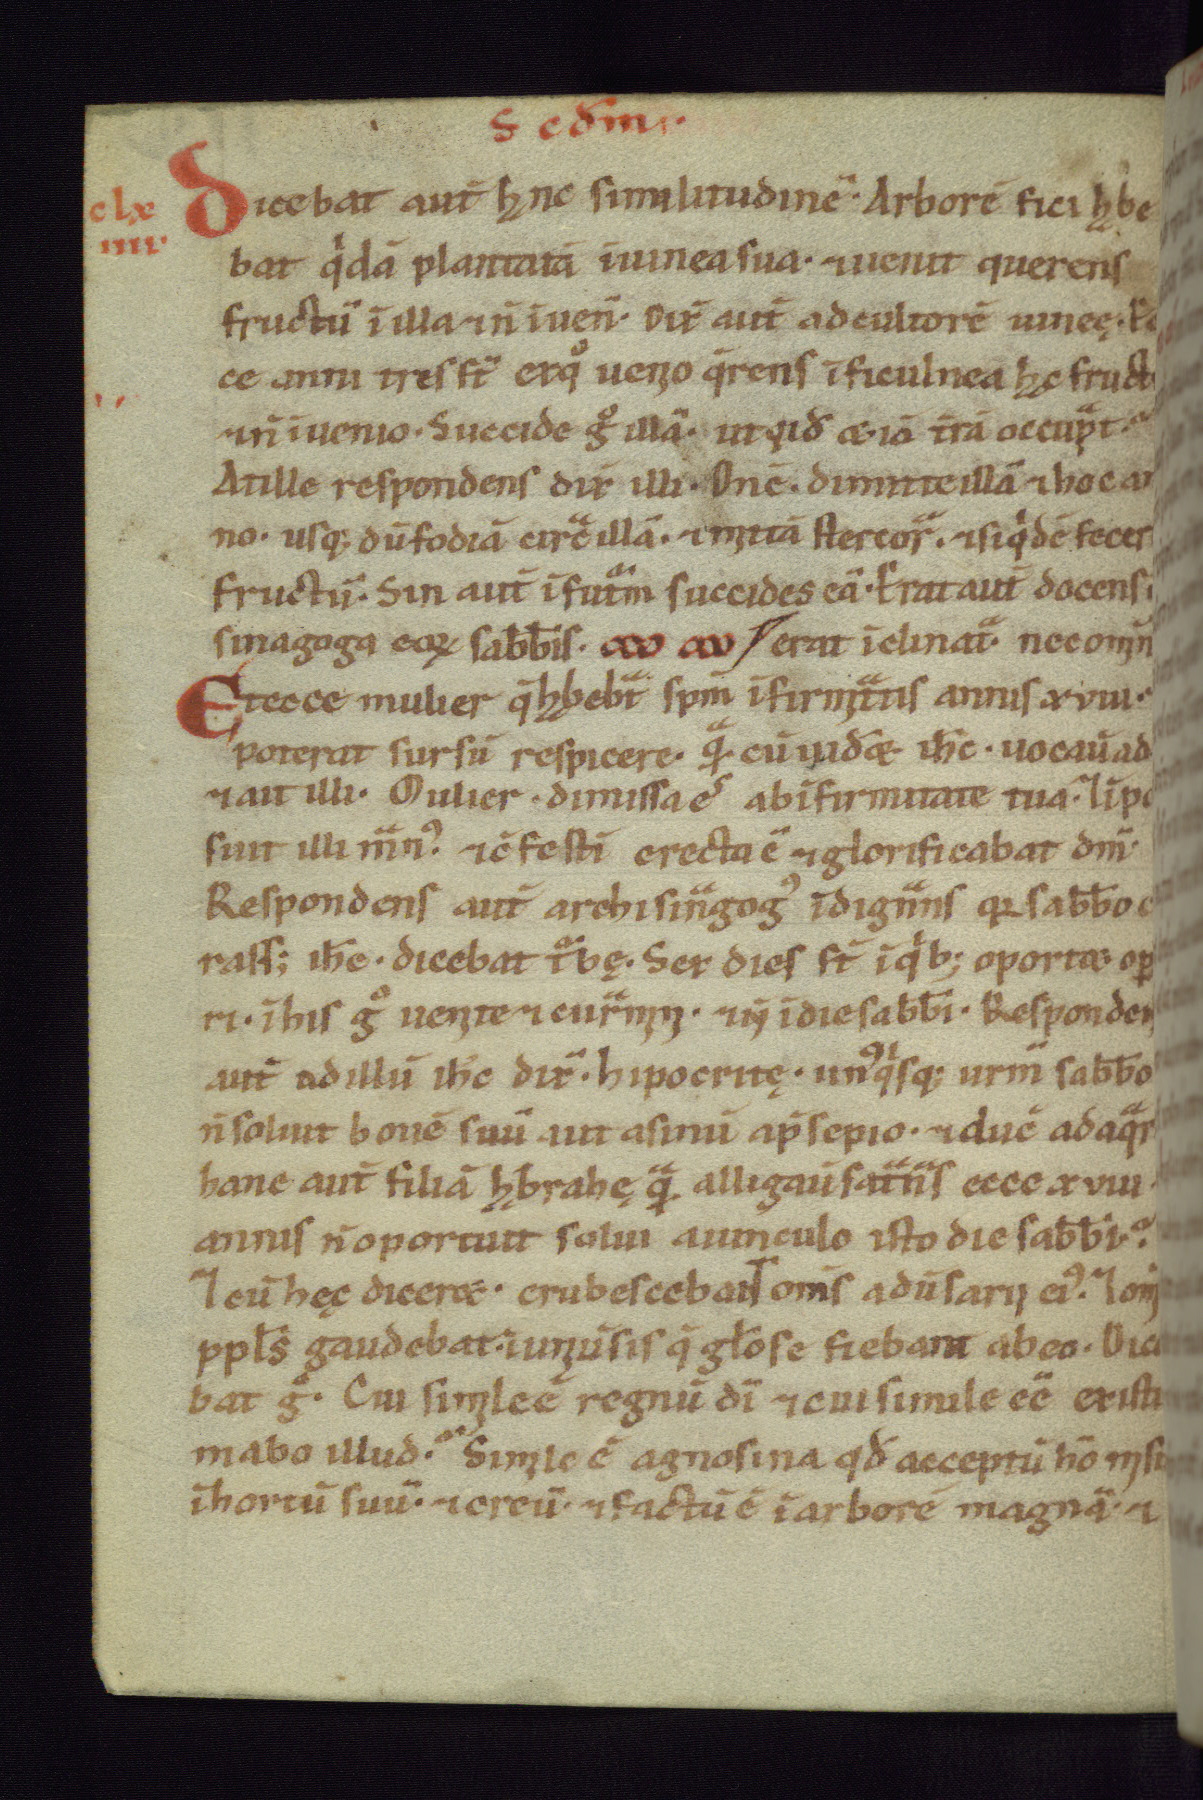 Scdm.
clx Dicebat aut̄ hc̨ similitudinē. Arborē fici hb̨e
iiii. bat qͥdā plantatā ī uinea sua. ⁊ uenit querens
fructū ī illa ⁊ n̄ īuen̄. Dix̄ aut̄ ad cultorē uineę.
ce anni tres st̄ ex qͦ uenio q̄rens ī ficulnea hc̨ fruct
⁊ n̄ īuenio. Succide gͦ illā. ut qͥd &iā t̄rā occupat.
At ille respondens dix̄ illi. Dn̄e. dimitte illā ⁊ hoc an
no. usq; dū fodiā circͣ illā. ⁊ mittā stercorͣ. ⁊ siqͥdē fecer
fructū. Sin aut̄ ī futͣm succides eā. Erat aut̄ docens ī
sinagoga eoꝝ sabb̄is. erat īclinatͣ. nec omn
Et ecce mulier q̄ hb̨ebt̄ sp̄m īfirmͣtis annis xviii.
poterat sursū respicere. qͣ cū uid& ih̄c. uocau ad
⁊ ait illi. Mulier. dimissa eͨ ab īfirmitate tua. ⁊ īpo
suit illi mͣnꝰ. ⁊ c̄festī erecta ē ⁊ glorificabat dm̄.
Respondens aut̄ archisinͣgogꝰ īdignͣns qꝛ sabb̄o c
rass; ih̄c. dicebat tͦbę. Sex dies st̄ ī qͥb; oport& op
ri. ī his gͦ uenite ⁊ curͣmini. ⁊ n̄ ī die sabb̄i. Responden
aut̄ ad illū ih̄c dix̄. hipocritę. unꝰqͥsq; ur̄m sabb̄o
n̄ soluit bouē suū aut asinū a p̄sepio. ⁊ duc̄ adaqͣr
hanc aut̄ filiā hb̨rahę qͣ alligau satͣnͣs ecce xviii
annis n̄ oportuit solui a uinculo isto die sabb̄i.
⁊ cū hęc dicer&. erubescebant om̄s adu̅sarii eiꝰ. ⁊ om̄
ppl̄s gaudebat ī uniu̅sis q̄ gl̄ose fiebant ab eo. Dice
bat gͦ. Cui simile ē regnū dī ⁊ cui simile eē existi
mabo illud. Simile ē agno sina qd̄ acceptū hō misi
ī hortū suū. ⁊ creū. ⁊ factū ē ī arborē magnā. ⁊